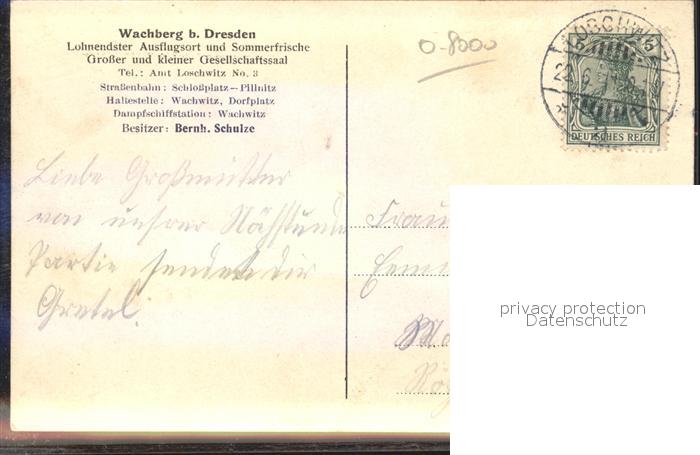 Wachberg b. Dresden
Lohnendster Ausflugsort und Sommerfrische
Großer und kleiner Gesellschaftssaal
Tel.: Amt Loschwitz No. 3
Straßenbahn: Schloßplatz—Pillnitz
Haltestelle: Wachwitz, Dorfplatz
Dampfschiffstation: Wachwitz
Besitzer: Bernh. Schulze
0-8000
LOSCHWITZ
5 5
22.6.
DEUTSCHES REICH
Liebe Großmutter
von unsrer Nähstunde
Partie sendet dir
Gretel.
Frau
privacy protection
Datenschutz